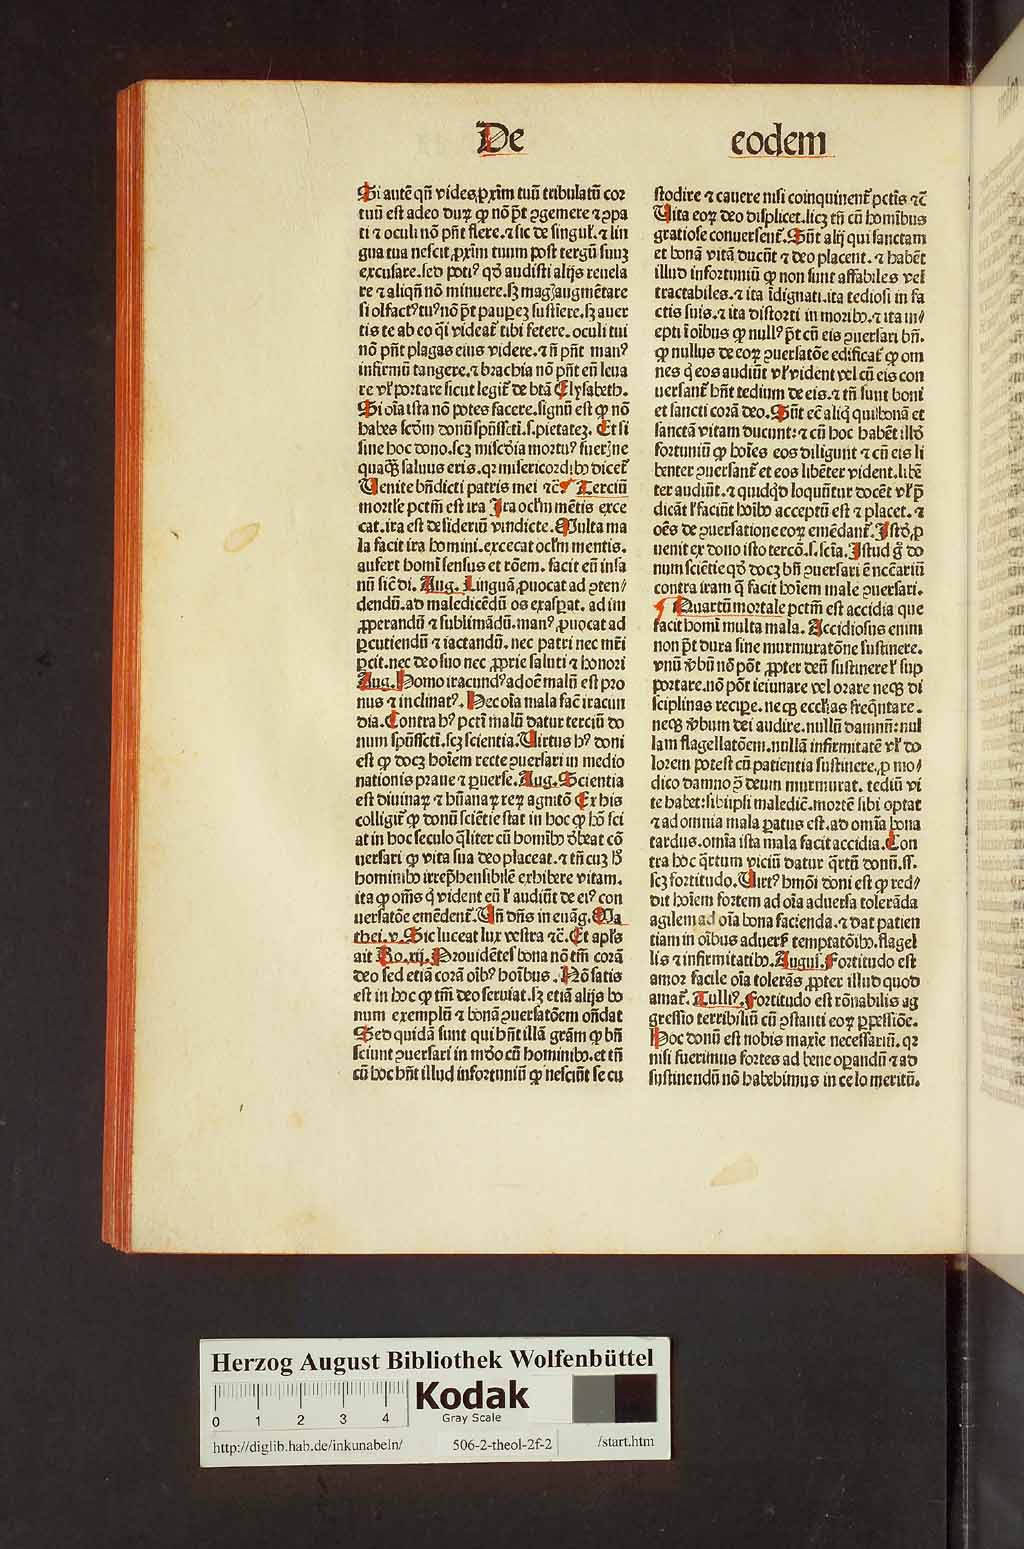 De eodem
Si autē qñ vides ꝓxīm tuū tribulatū cor
tuū est adeo duꝝ ꝙ nō p̄t ꝯgemere ⁊ ꝯpa
ti ⁊ oculi nō pn̄t flere. ⁊ sic de singul̓. ⁊ lin
gua tua nescit ꝓxīm tuum post tergū suuꝫ
excusare. sed poti⁹ qđ audisti alijs reuela
re ⁊ aliqñ nō minuere. sꝫ mag̓ augmētare
si olfact⁹ tu⁹ nō p̄t paupeꝫ sustiere. sꝫ auer
tis te ab eo q̄i videat̄ tibi fetere. oculi tui
nō pn̄t plagas eius videre. ⁊ n̄ pn̄t man⁹
infirmū tangere. ⁊ brachia nō pn̄t eū leua
re vl̓ portare sicut legit̄ de btā Elysabeth.
Si oīa ista nō potes facere. signū est ꝙ nō
habes scđm donū spūssctī. s. pietateꝫ. Et si
sine hoc dono. scꝫ misc̄dia mortu⁹ fuer̓ ne
quaq̄ꝫ saluus eris. qꝛ misericordibꝰ dicet̄
Uenite bn̄dicti patris mei ⁊c̄ ¶ Terciū
mortl̓e pctm̄ est ira Ira ocl̓m mētis exce
cat. ira est desideriū vindicte. Multa ma
la facit ira homini. excecat ocl̓m mentis.
aufert homī sensus et rōem. facit eū insa
nū sic̄ di. Aug. Linguā ꝓuocat ad ꝯten/
dendū. ad maledicēdū os exasꝑat. ad im
ꝓperandū ⁊ sublimādū. man⁹ ꝓuocat ad
ꝑcutiendū ⁊ iactandū. nec patri nec mr̄i
ꝑcit. nec deo suo nec ꝓprie saluti ⁊ honori
Aug. Homo iracund⁹ ad oē malū est pro
nus ⁊ inclinat⁹. Hec oīa mala fac̄ iracun
dia. Contra h⁹ pctī malū datur terciū do
num spūssctī. scꝫ scientia. Uirtus h⁹ doni
est ꝙ docꝫ hoīem recte ꝯuersari in medio
nationis praue ⁊ ꝑuerse. Aug. Scientia
est diuinaꝝ ⁊ hūanaꝝ reꝝ agnitō Ex his
colligit̄ ꝙ donū sciētie stat in hoc ꝙ hō sci
at in hoc seculo q̄liter cū homibꝰ đbeat cō
uersari ꝙ vita sua deo placeat. ⁊ tn̄ cuꝫ B̄
hominibꝰ irrep̄hensibilē exhibere vitam.
ita ꝙ om̄s q̄ vident eū l̓ audiūt de ei⁹ con
uersatōe emēdent̄. Un̄ dn̄s in euāg. Ma
thei. v. Sic luceat lux vestra ⁊c̄. Et apl̓s
ait Ro. xij. Prouidētes bona nō tm̄ corā
deo sed etiā corā oīb⁹ hoībus. Nō satis
est in hoc ꝙ tm̄ deo seruiat. sꝫ etiā alijs bo
num exemplū ⁊ bonā ꝯuersatōem on̄dat
Sed quidā sunt qui hn̄t illā grām ꝙ bn̄
sciunt ꝯuersari in mūdo cū hominibꝰ. et tn̄
cū hoc hn̄t illud infortuniū ꝙ nesciūt se cu
stodire ⁊ cauere nisi coinquinent̄ pctīs ⁊c̄
Uita eoꝝ deo displicet. licꝫ tn̄ cū homībus
gratiose conuersent̄. Sūt alij qui sanctam
et bonā vitā ducūt ⁊ deo placent. ⁊ habēt
illud infortuniū ꝙ non sunt affabiles vel
tractabiles. ⁊ ita īdignati. ita tediosi in fa
ctis suis. ⁊ ita distorti in moribꝰ. ⁊ ita in/
epti ī oībus ꝙ null⁹ p̄t cū eis ꝯuersari bn̄.
ꝙ nullus de eoꝝ ꝯuersatōe edificat̄ ꝙ om
nes q̄ eos audiūt vl̓ vident vel cū eis con
uersant̄ hn̄t tedium de eis. ⁊ tn̄ sunt boni
et sancti corā deo. Sūt ec̄ aliq̄ qui bonā et
sanctā vitam ducunt: ⁊ cū hoc habēt illđ
fortuniū ꝙ hoīes eos diligunt ⁊ cū eis li
benter ꝯuersant̄ et eos libēter vident. libē
ter audiūt. ⁊ quidqđ loquūtur docēt vl̓ p̄
dicāt l̓ faciūt hoībꝰ acceptū est ⁊ placet. ⁊
oēs de ꝯuersatione eoꝝ emēdant̄. Istđ ꝓ
uenit ex dono isto tercō. s. scīa. Istud g̊ do
num sciētie qđ docꝫ bn̄ ꝯuersari ē nc̄cariū
contra iram q̄ facit hoīem male ꝯuersari.
¶ Quartū mortale pctm̄ est accidia que
facit homī multa mala. Accidiosus enim
non p̄t dura sine murmuratōne sustinere.
vnū v̄bū nō pōt ꝓpter deū sustinere l̓ sup
portare. nō pōt ieiunare vel orare neqꝫ di
sciplinas recipe. neqꝫ eccl̓ias freq̄ntare.
neqꝫ v̄bum dei audire. nullū damnū: nul
lam flagellatōem. nullā infirmitatē vl̓ do
lorem potest cū patientia sustinere. ꝓ mo/
dico damno ꝯ̄ deum murmurat. tediū vi
te habet: sibiipsi maledic̄. mortē sibi optat
⁊ ad omnia mala ꝑatus est. ad om̄ia bona
tardus. om̄ia ista mala facit accidia. Con
tra hoc q̄rtum viciū datur q̄rtū donū. ss.
scꝫ fortitudo. Uirt⁹ hmōi doni est ꝙ red/
dit hoīem fortem ad oīa aduersa tolerāda
agilem ad oīa bona facienda. ⁊ dat patien
tiam in oībus aduers̓ temptatōibꝰ. flagel
lis ⁊ infirmitatibꝰ. Augus. Fortitudo est
amor facile oīa tolerās ꝓpter illud quod
amat̄. Tulli⁹. Fortitudo est rōnabilis ag
gressio terribiliū cū ꝯstanti eoꝝ ꝑpessiōe.
Hoc donū est nobis maxīe necessariū. qꝛ
nisi fuerimus fortes ad bene oꝑandū ⁊ ad
sustinendū nō habebimus in celo meritū.
Herzog August Bibliothek Wolfenbüttel
0 1 2 3 4 Kodak
Gray Scale
http://diglib.hab.de/inkunabeln/ 506-2-theol-2f-2 /start.htm